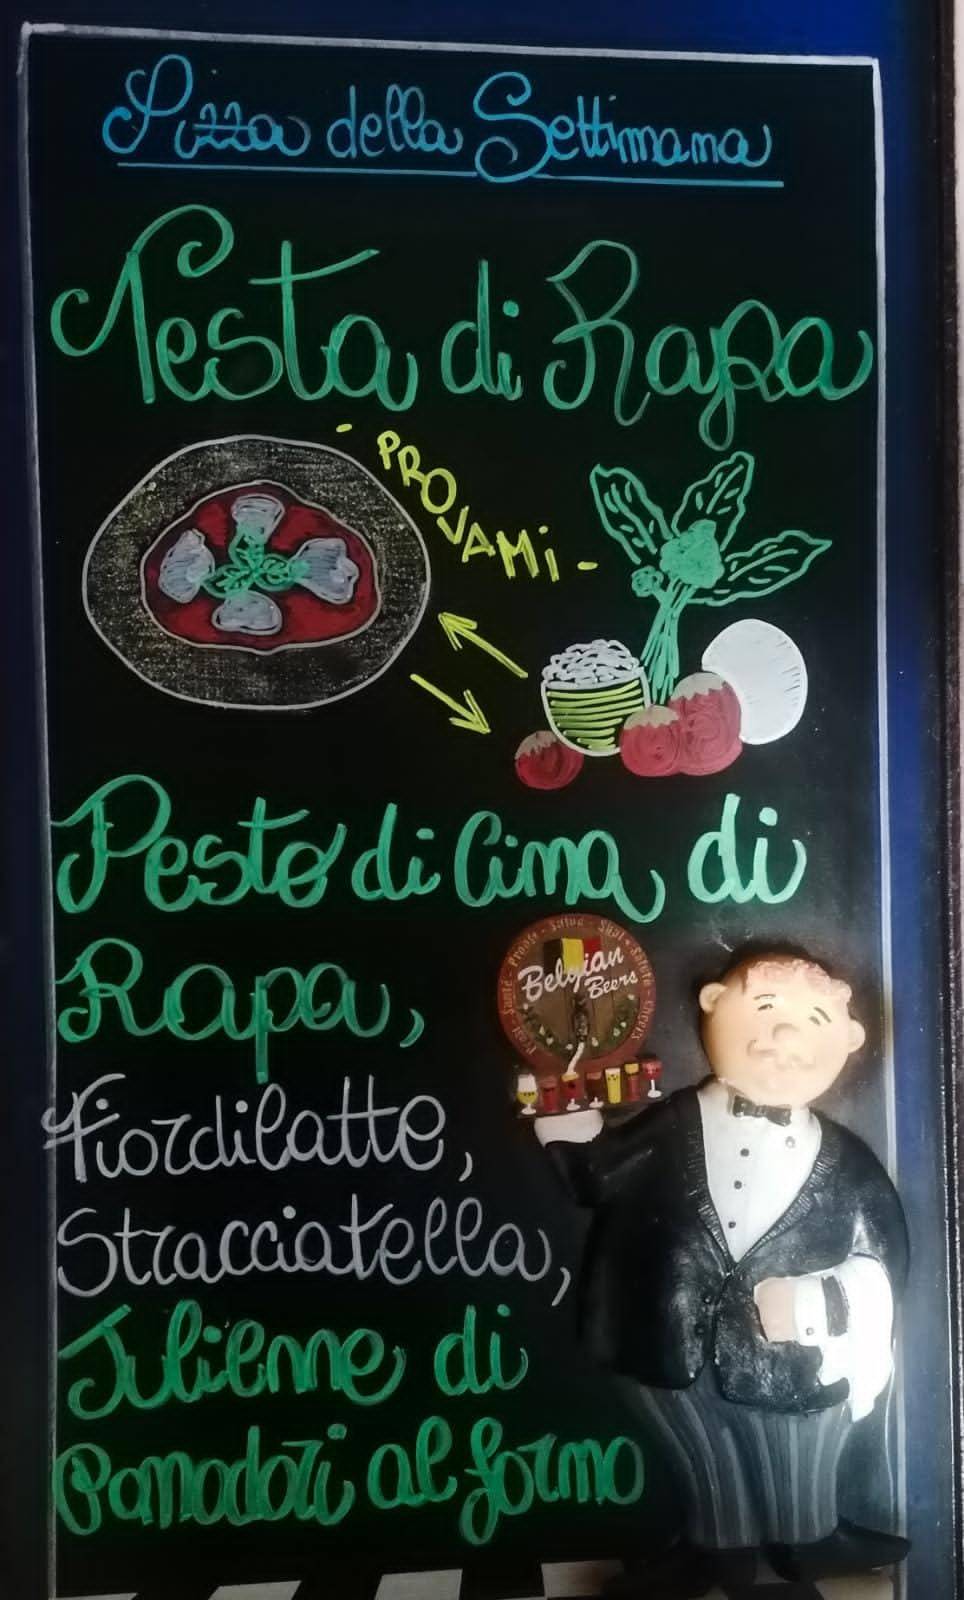 Pizza della Settimana
Testa di Rapa
- PROVAMi -
Pesto di Cima di
Rapa,
Belgian
Beers
Fiordilatte,
Stracciatella,
Julienne di
Pomodori al forno